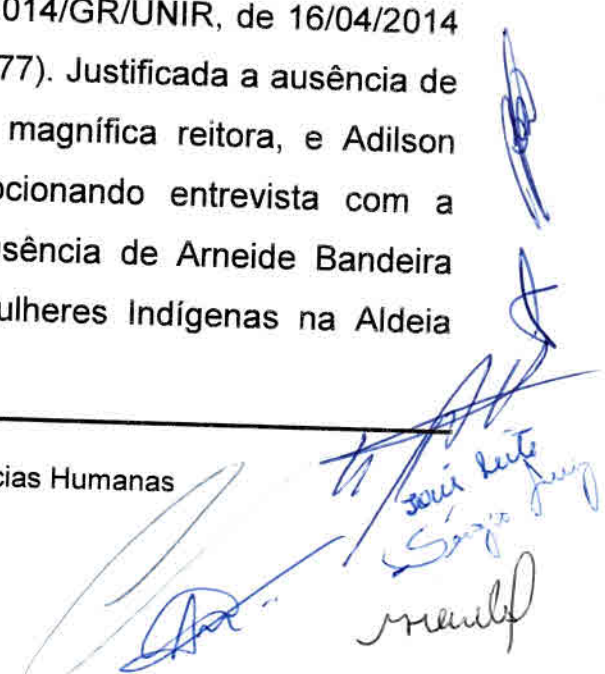 014/GR/UNIR, de 16/04/2014
77). Justificada a ausência de
magnífica reitora, e Adilson
cionando entrevista com a
sência de Arneide Bandeira
ulheres Indígenas na Aldeia
cias Humanas
Leite
Sérgio